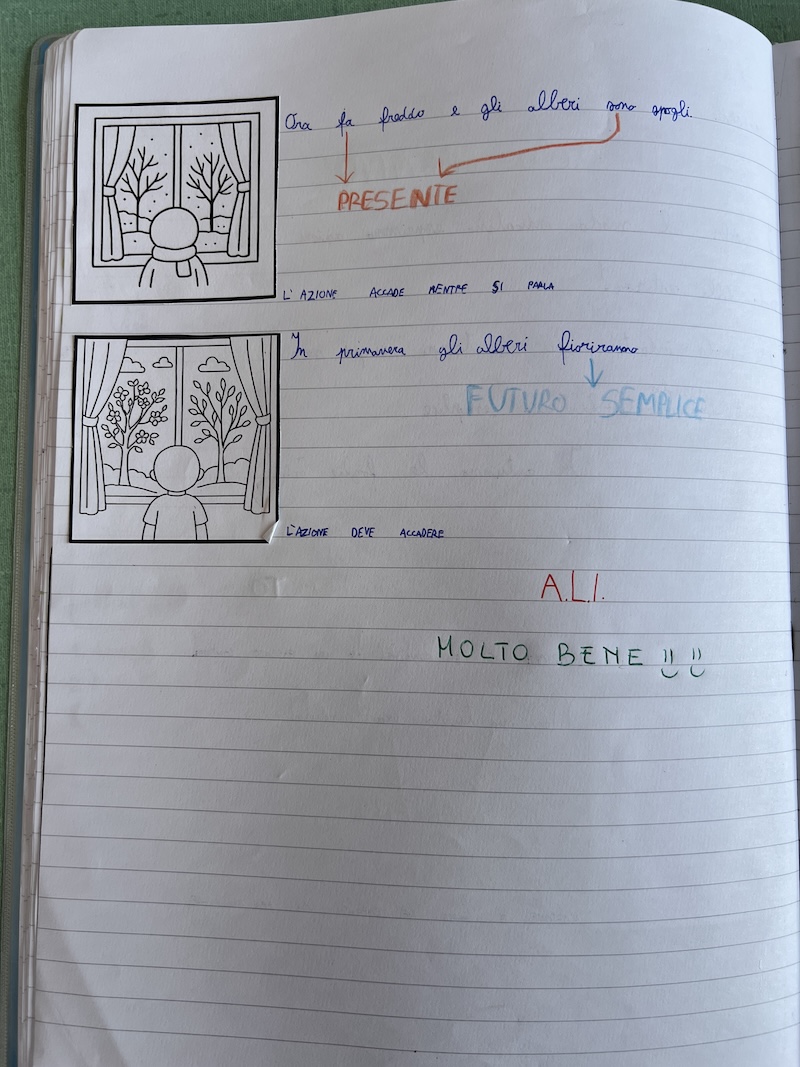 Ora fa freddo e gli alberi sono spogli.
PRESENTE
L'AZIONE ACCADE MENTRE SI PARLA
In primavera gli alberi fioriranno
FUTURO SEMPLICE
L'AZIONE DEVE ACCADERE
A.L.I.
MOLTO BENE !! !!